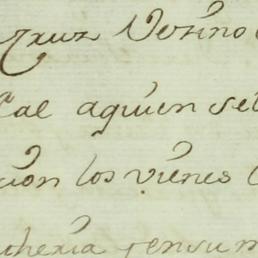 Cruz Vezino
cal aquien se
cion los vienes
cheria y en su m